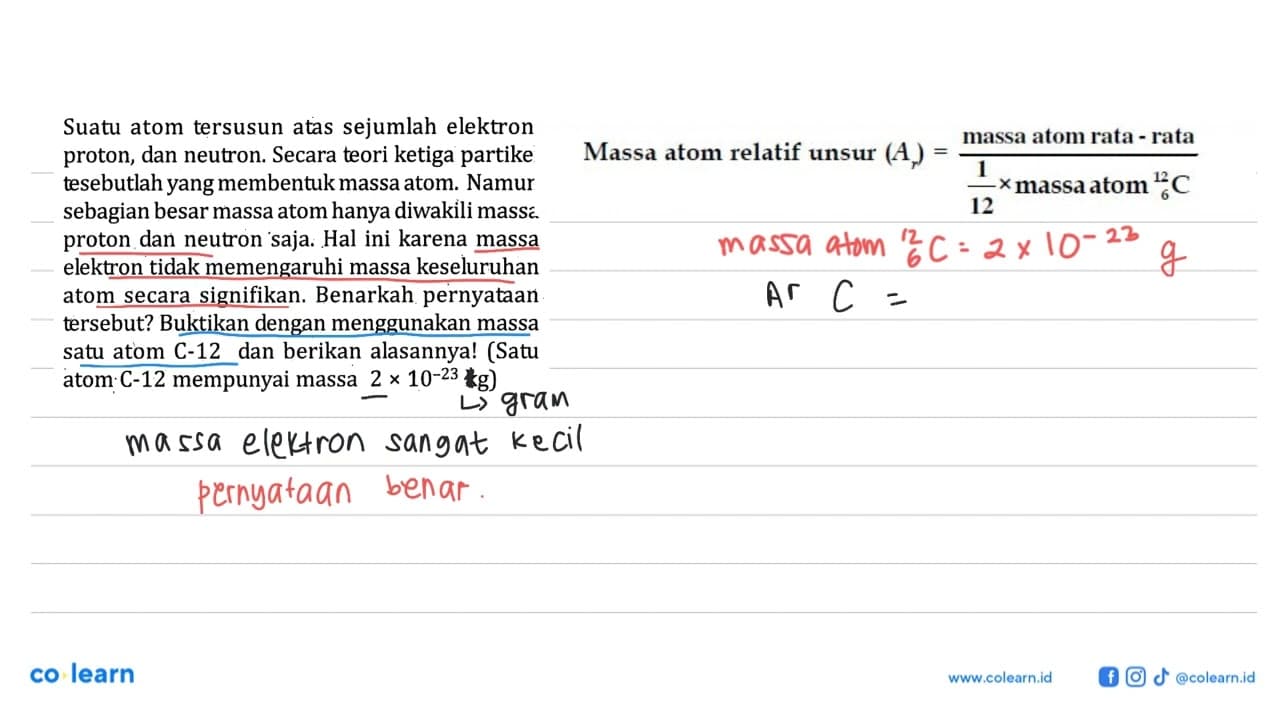 Suatu atom tersusun atas sejumlah elektron
proton, dan neutron. Secara teori ketiga partike
tesebutlah yang membentuk massa atom. Namur
sebagian besar massa atom hanya diwakili massa
proton dan neutron saja. Hal ini karena massa
elektron tidak memengaruhi massa keseluruhan
atom secara signifikan. Benarkah pernyataan
tersebut? Buktikan dengan menggunakan massa
satu atom C-12 dan berikan alasannya! (Satu
atom C-12 mempunyai massa 2 × 10⁻²³ kg)
↳ gram
massa elektron sangat kecil
pernyataan benar.
Massa atom relatif unsur (Aᵣ) = massa atom rata - rata
1/12 × massa atom ¹²₆C
massa atom ¹²₆C = 2 × 10⁻²³ g
Ar C =
co learn
www.colearn.id
@colearn.id